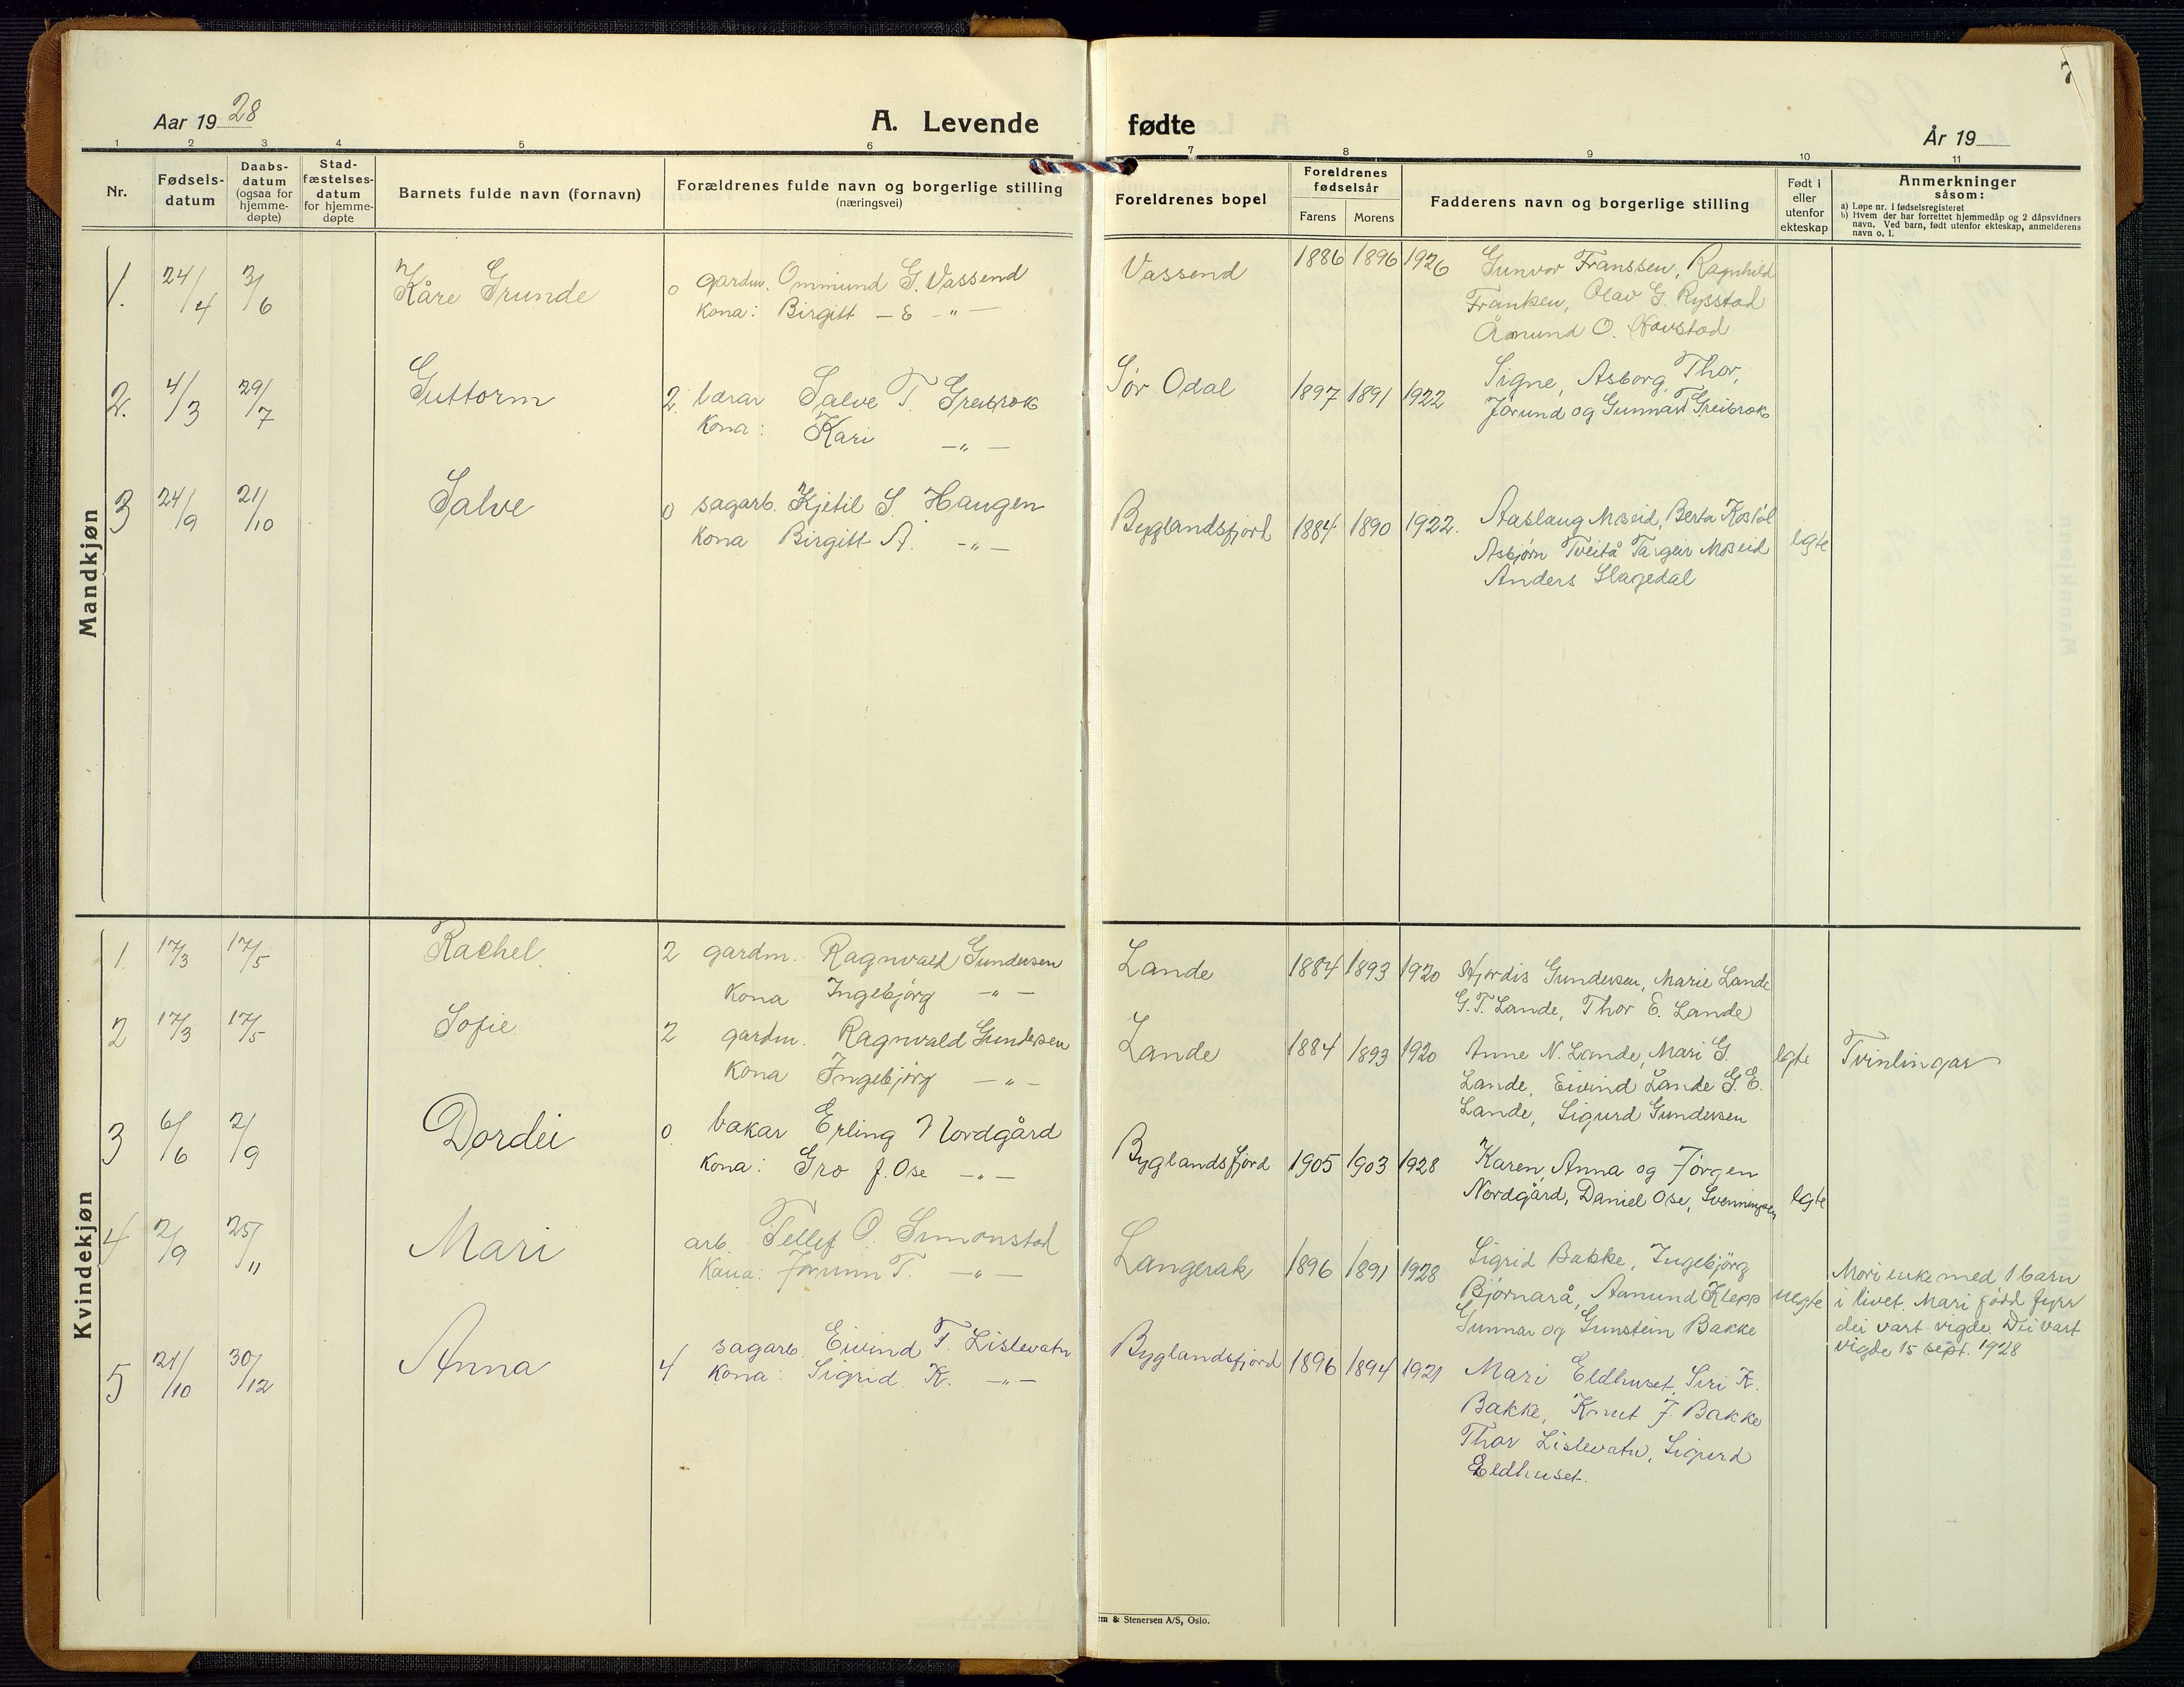 7
Aar 1928
A. Levende
fødte
År 19
1 2 3 4 5 6
7 8 9 10 11
Nr.
Fødsels-
datum
Daabs-
datum
(ogsaa for
hjemme-
døpte)
Stad-
fæstelses-
datum
for hjemme-
døpte
Barnets fulde navn (fornavn)
Forældrenes fulde navn og borgerlige stilling
(næringsvei)
Foreldrenes bopel
Foreldrenes
fødselsår
Farens Morens
Fadderens navn og borgerlige stilling
Født i
eller
utenfor
ekteskap
Anmerkninger
såsom:
a) Løpe nr. i fødselsregisteret
b) Hvem der har forrettet hjemmedåp og 2 dåpsvidners
navn. Ved barn, født utenfor ekteskap, anmelderens
navn o. l.
Mandkjøn
1. 24/4 3/6 Kåre Grunde
0 gardm. Ommund G. Vassend
Kona: Birgitt — E — „ —
Vassend 1886 1896 1926
Gunvor Franssen, Ragnhild
Franken, Olav G. Rysstad
Åmund O. Novstad
2. 4/3 29/7 Guttorm
2. lærar Salve T. Greibrok
Kona: Kari — „ —
Sør Odal 1897 1891 1922
Signe, Asborg, Thor,
Jorund og Gunnar T Greibrok
3 24/9 21/10 Salve
0 sagarb. Kjetil S. Haugen
Kona Birgitt A. — „ —
Byglandsfjord 1884 1890 1922.
Aaslaug Moseid, Berta
Asbjørn Tveitå Targeir Moseid
Anders Slagedal
egte
Kvindekjøn
1 17/3 17/5 Rachel
2 gardm. Ragnvald Gundersen
Kona Ingebjørg — „ —
Lande 1884 1893 1920
Hjørdis Gundersen, Marie Lande
G. T. Lande, Thor E. Lande
2 17/3 17/5 Sofie
2 gardm. Ragnvald Gundersen
Kona Ingebjörg — „ —
Lande 1884 1893 1920
Anne N. Lande, Mari G.
Lande, Eivind Lande G. E.
Lande, Sigurd Gundersen
egte
Tvinlingar
3 6/6 2/9 Dordei
0 bakar Erling Nordgård
Kona: Gro J. Ose — „ —
Byglandsfjord 1905 1903 1928
Karen, Anna og Jørgen
Nordgård, Daniel Ose, Svenningsen
egte
4 2/9 25/11 Mari
arb. Tellef O. Simonstad
Kona: Jorunn T. — „ —
Langerak 1896 1891 1928
Sigrid Bakke, Ingebjörg
Bjørnarå, Aamund Klepp
Gunnar og Gunstein Bakke
uegte
Mori enke med 1 barn
i livet. Mari född fyrr
dei vart vigde. Dei vart
vigde 15 sept. 1928
5 21/10 30/12 Anna
4 sagarb. Eivind T. Lislevatn
Kona: Sigrid K. — „ —
Byglandsfjord 1896 1894 1921
Mari Eldhuset, Siri K.
Bakke, Knut J. Bakke
Thor Lislevatn, Sigurd
Eldhuset.
& Stenersen A/S, Oslo.